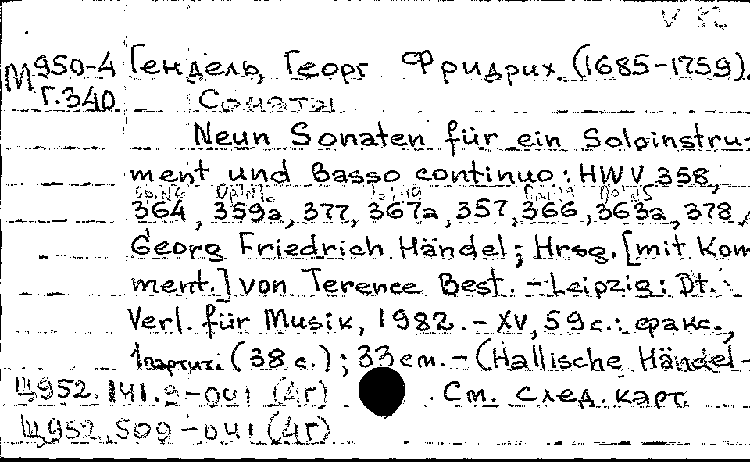 V 52
М950-4 Гендель, Георг Фридрих (1685-1759).
Г.340 Сонаты
Neun Sonaten für ein Soloinstru-
ment und Basso continuo: HWV 358,
364, 359a, 377, 367a, 357, 366, 363a, 378 /
Georg Friedrich Händel; Hrsg. [mit Kom-
ment.] von Terence Best. - Leipzig: Dt.
Verl. für Musik, 1982. - XV, 59 с.: факс.,
1 парт. (38 с.); 33 см. - (Hallische Händel-
Щ952.141.9-041 (4Г) . См. след. карт.
Щ952.509-041 (4Г)